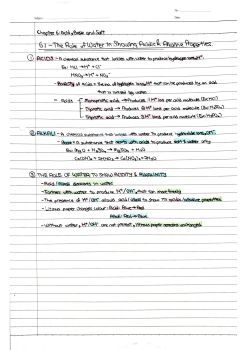 Chapter 6: Acid, Base and Salt
6.1 - The Role of Water in Showing Acidic & Alkaline Properties
① ACIDS - A chemical substance that ionises with water to produce hydrogen ions, H⁺.
Ex: HCl → H⁺ + Cl⁻
HNO₃ → H⁺ + NO₃⁻
- Basicity of acids = the no. of hydrogen ions, H⁺ that can be produced by an acid
that is ionised by water.
- Acids
Monoprotic acid → Produces 1 H⁺ ions per acid molecule
Diprotic acid → Produces 2 H⁺ ions per acid molecule (Ex: H₂SO₄)
Triprotic acid → Produces 3 H⁺ ions per acid molecule (Ex: H₃PO₄)
② ALKALI - A chemical substance that ionises with water to produce hydroxide ions, OH⁻.
- Base = A substance that reacts with acids to produce salt & water only.
Ex: MgO + H₂SO₄ → MgSO₄ + H₂O
③ THE ROLE OF WATER TO SHOW ACIDITY & ALKALINITY
- Acid/alkali dissolves in water
- Ionises with water to produce H⁺/OH⁻, that can move freely
- The presence of H⁺/OH⁻ allows acid/alkali to show its acidic/alkaline properties
- Litmus paper changes colour: Acid: Blue → Red
Alkali: Red → Blue
- Without water, H⁺/OH⁻ are not present, litmus paper remains unchanged